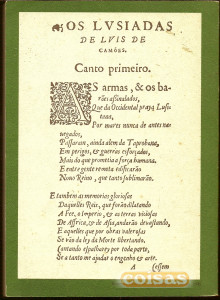 OS LVSIADAS
DE LVIS DE
CAMÕES.
Canto primeiro.
AS armas, & os ba-
rões assinalados,
Que da Occidental praya Lusi-
tana,
Por mares nunca de antes na-
uegados,
Passaram, ainda alem da Taprobana,
Em perigos, & guerras esforçados,
Mais do que prometia a força humana.
E entre gente remota edificarão
Nouo Reino, que tanto sublimarão.
E tambem as memorias gloriosas
Daquelles Reis, que foram dilatando
A Fee, o Imperio, & as terras viciosas
De Affrica, & de Asia, andarão deuastando,
E aquelles que por obras valerosas
Se vão da ley da Morte libertando,
Cantando espalharey por toda parte,
Se a tanto me ajudar o engenho & arte.
A
Cessem
coisas